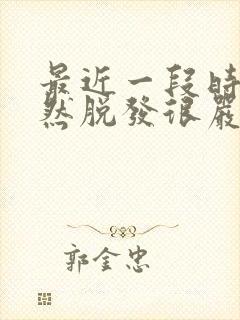 最近一段時
然脱發很嚴
郭金忠